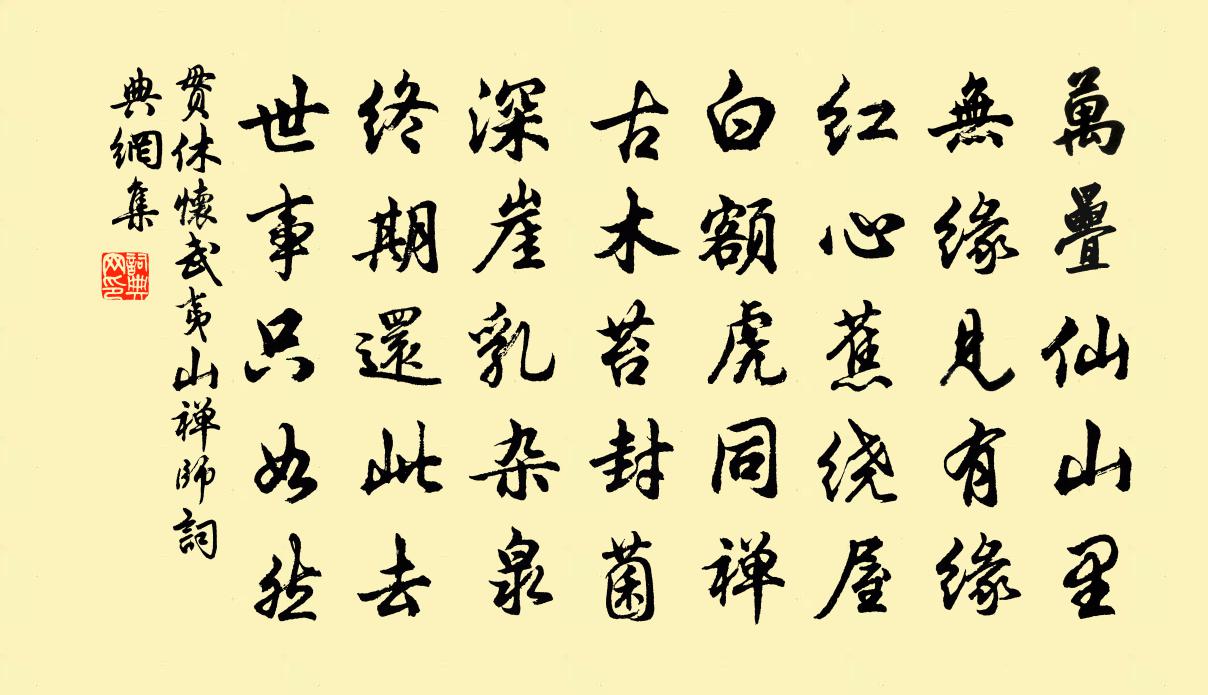 萬疊仙山里
無缘見有缘
红心蕉绕屋
白額虎同禅
古木苔封菌
深崖乳杂泉
终期還此去
世事只如然
貫休懷武夷山禅師詞
典網集
詞典
网印